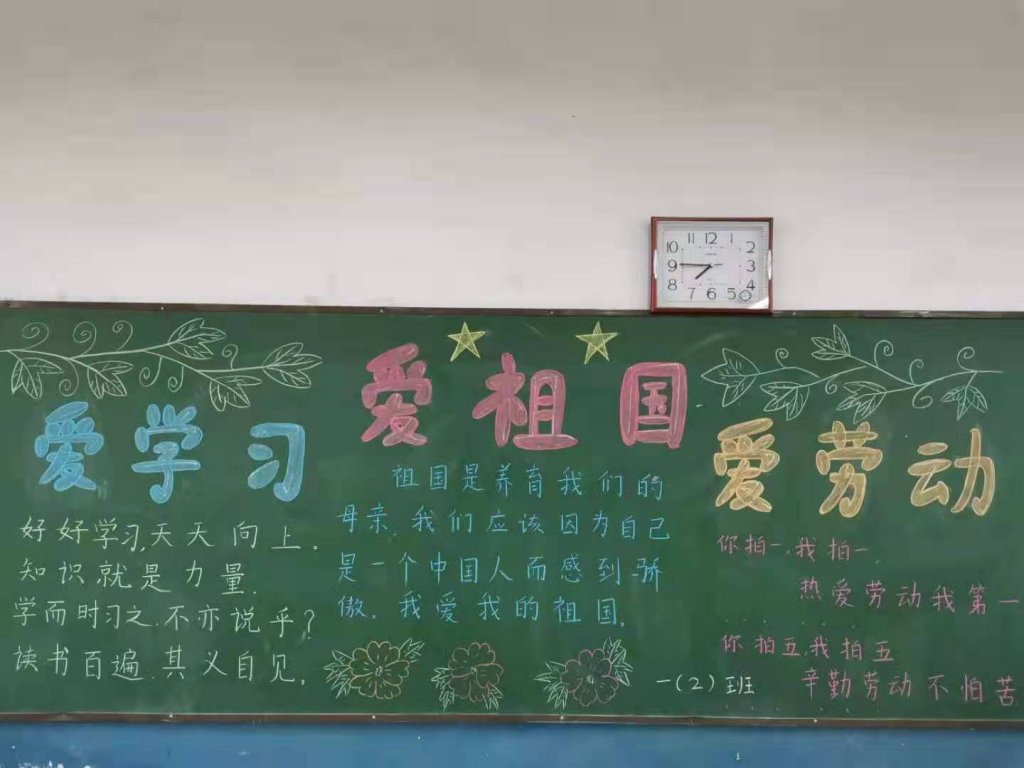 10 11 12 1 2
9 3
8 7 6 5 4
爱学习
好好学习,天天向上.
知识,就是力量.
学而时习之.不亦说乎?
读书百遍.其义自见.
爱祖国
祖国是养育我们的
母亲.我们应该因为自己
是一个中国人而感到骄
傲.我爱我的祖国.
爱劳动
你拍一.我拍一.
热爱劳动我第一
你拍五,我拍五
辛勤劳动不怕苦
一(2)班